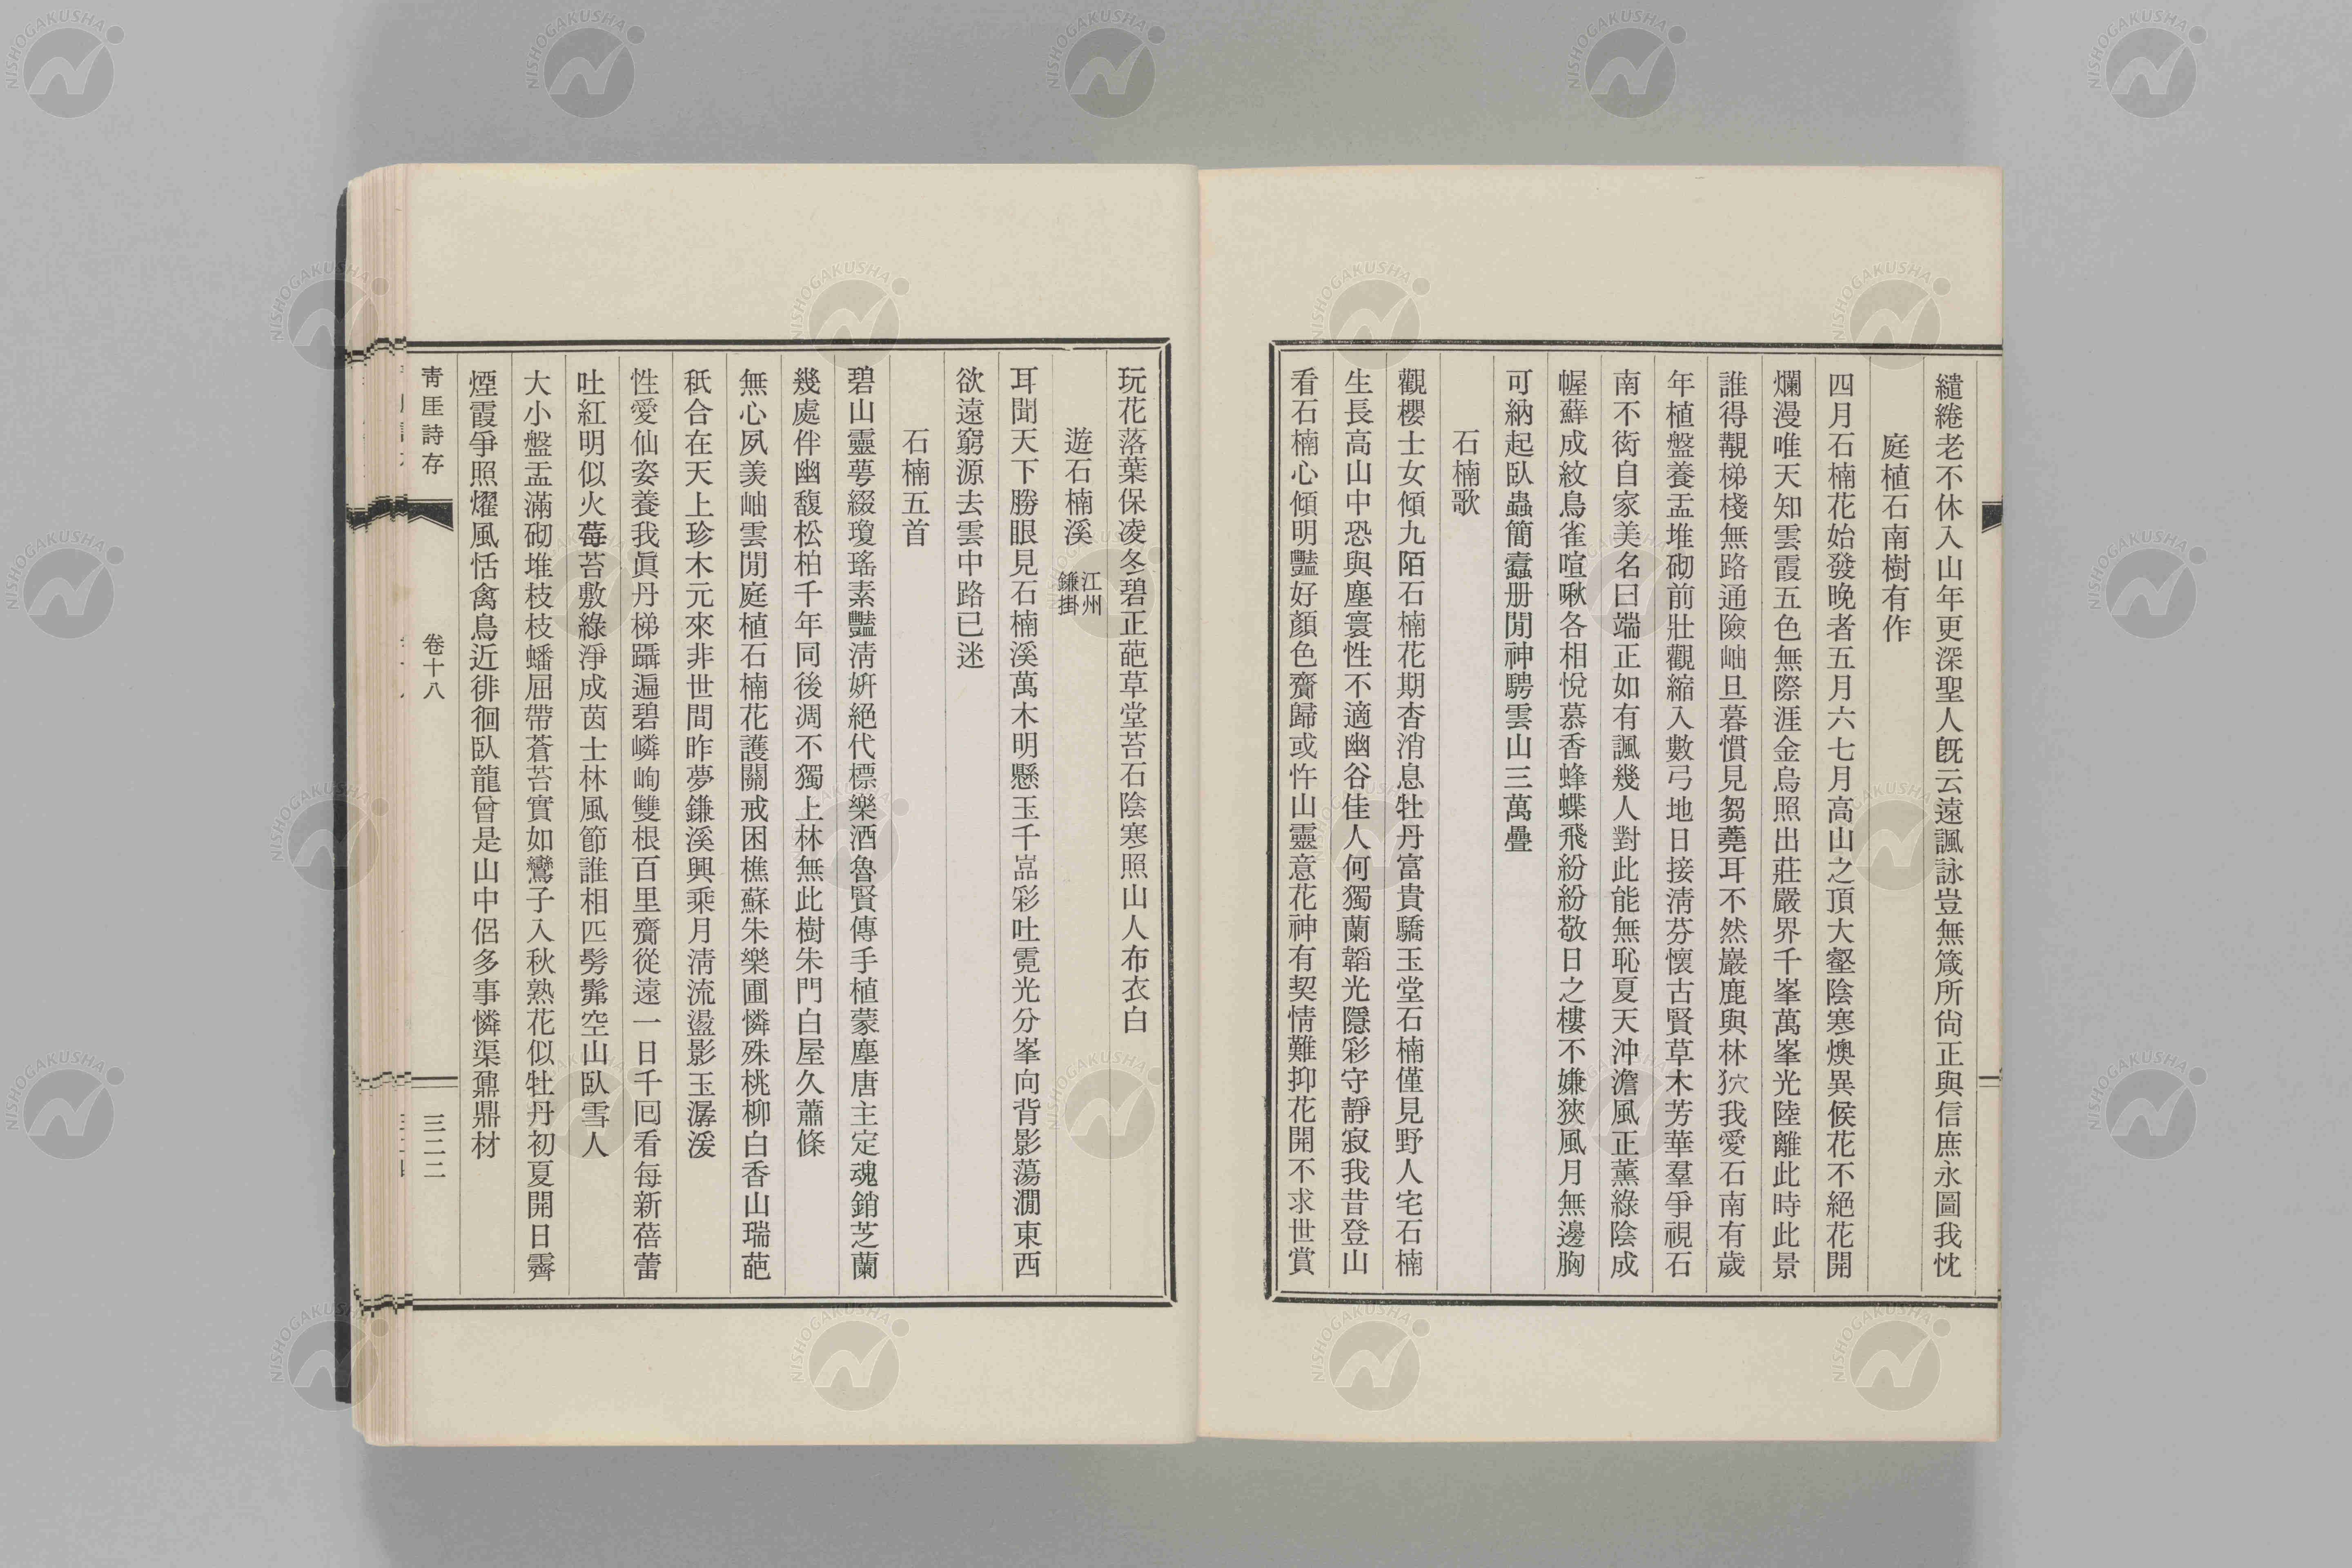 繾綣老不休入山年更深聖人既云遠諷詠豈無箴所尙正與信庶永圖我忱
庭植石南樹有作
四月石楠花始發晚者五月六七月高山之頂大壑陰寒燠異候花不絕花開
爛漫唯天知雲霞五色無際涯金烏照出莊嚴界千峯萬峯光陸離此時此景
誰得覩梯棧無路通險岫旦暮慣見芻蕘耳不然巖鹿與林狖我愛石南有歲
年植盤養盂堆砌前壯觀縮入數弓地日接淸芬懷古賢草木芳華羣爭視石
南不衒自家美名曰端正如有諷幾人對此能無恥夏天沖澹風正薰綠陰成
幄蘚成紋鳥雀喧啾各相悅慕香蜂蝶飛紛紛敬日之樓不嫌狹風月無邊胸
可納起臥蟲簡蠹册閒神騁雲山三萬疊
石楠歌
觀櫻士女傾九陌石楠花期杳消息牡丹富貴驕玉堂石楠僅見野人宅石楠
生長高山中恐與塵寰性不適幽谷佳人何獨蘭韜光隱彩守靜寂我昔登山
看石楠心傾明豔好顏色齎歸或忤山靈意花神有契情難抑花開不求世賞
玩花落葉保凌冬碧正葩草堂苔石陰寒照山人布衣白
遊石楠溪 江州鎌掛
耳聞天下勝眼見石楠溪萬木明懸玉千嵓彩吐霓光分峯向背影蕩澗東西
欲遠窮源去雲中路已迷
石楠五首
碧山靈蕚綴瓊瑤素豔淸姸絕代標樂酒魯賢傳手植蒙塵唐主定魂銷芝蘭
幾處伴幽馥松柏千年同後凋不獨上林無此樹朱門白屋久蕭條
無心夙羡岫雲閒庭植石楠花護關戒困樵蘇朱樂圃憐殊桃柳白香山瑞葩
秖合在天上珍木元來非世間昨夢鎌溪興乘月淸流盪影玉潺湲
性愛仙姿養我眞丹梯躡遍碧嶙峋雙根百里齎從遠一日千囘看每新蓓蕾
吐紅明似火莓苔敷綠淨成茵士林風節誰相匹髣髴空山臥雪人
大小盤盂滿砌堆枝枝蟠屈帶蒼苔實如鸞子入秋熟花似牡丹初夏開日霽
煙霞爭照燿風恬禽鳥近徘徊臥龍曾是山中侶多事憐渠鼐鼎材
靑厓詩存 卷十八 三二二